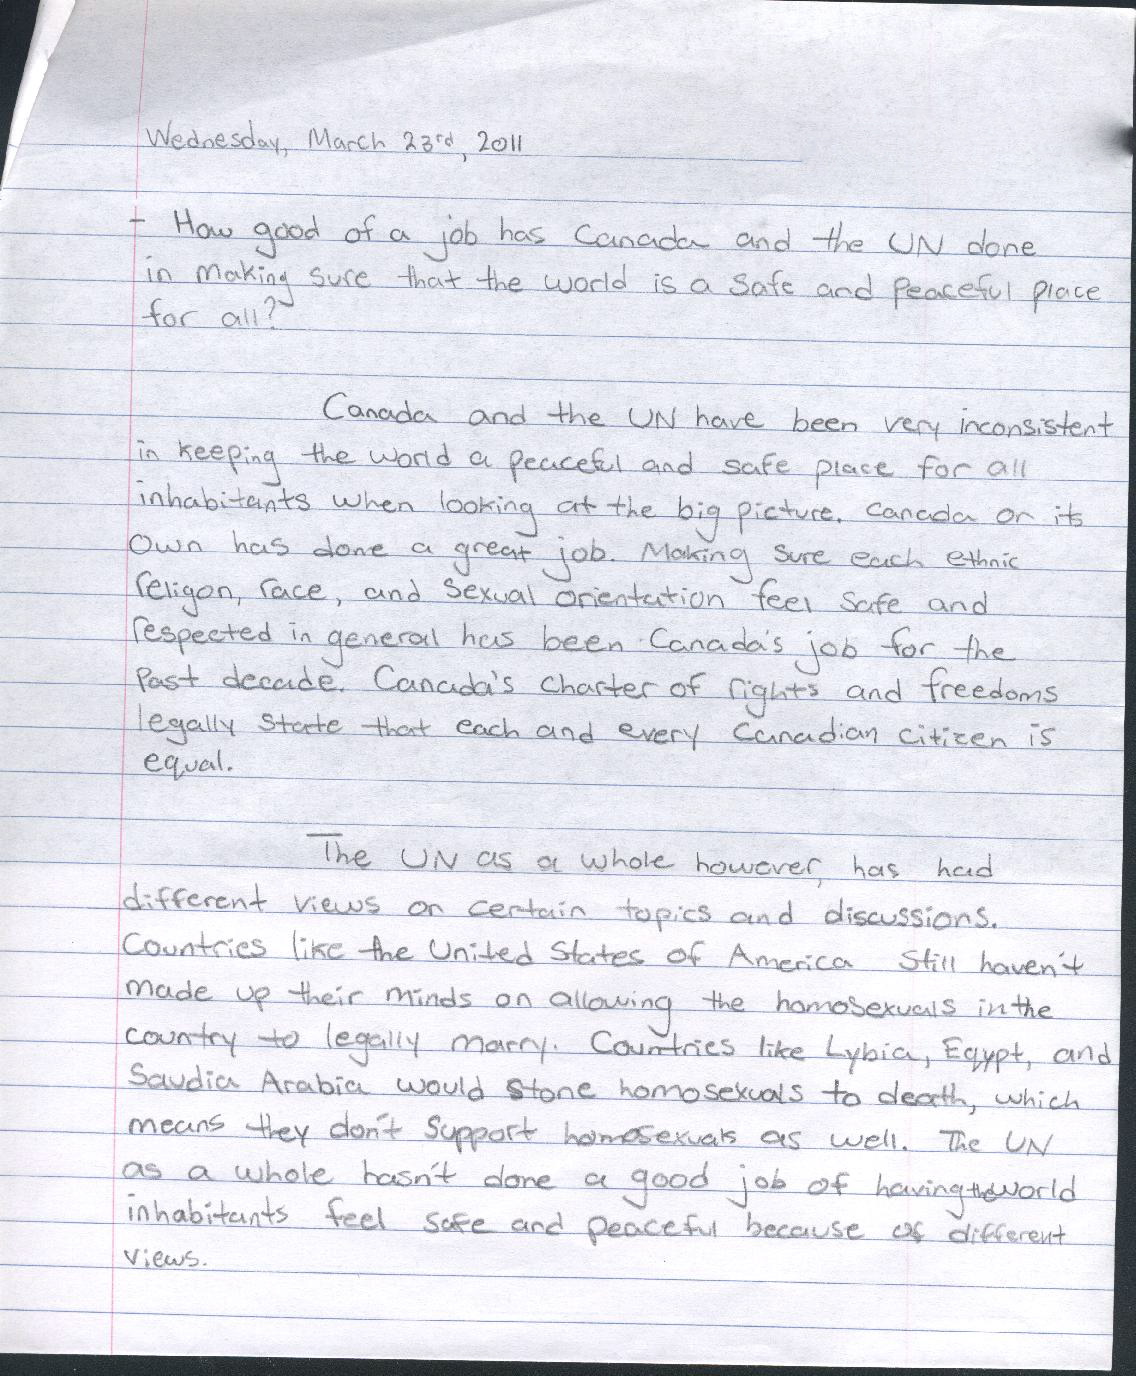 Wednesday, March 23rd, 2011
- How good of a job has Canada and the UN done
in making sure that the world is a safe and peaceful place
for all?
Canada and the UN have been very inconsistent
in keeping the world a peaceful and safe place for all
inhabitants when looking at the big picture. Canada on its
own has done a great job. Making sure each ethnic
religon, race, and sexual orientation feel safe and
respected in general has been Canada's job for the
past decade. Canada's charter of rights and freedoms
legally state that each and every Canadian citizen is
equal.
The UN as a whole however, has had
different views on certain topics and discussions.
Countries like the United States of America still haven't
made up their minds on allowing the homosexuals in the
country to legally marry. Countries like Lybia, Egypt, and
Saudia Arabia would stone homosexuals to death, which
means they don't support homosexuals as well. The UN
as a whole hasn't done a good job of having the world
inhabitants feel safe and peaceful because of different
views.